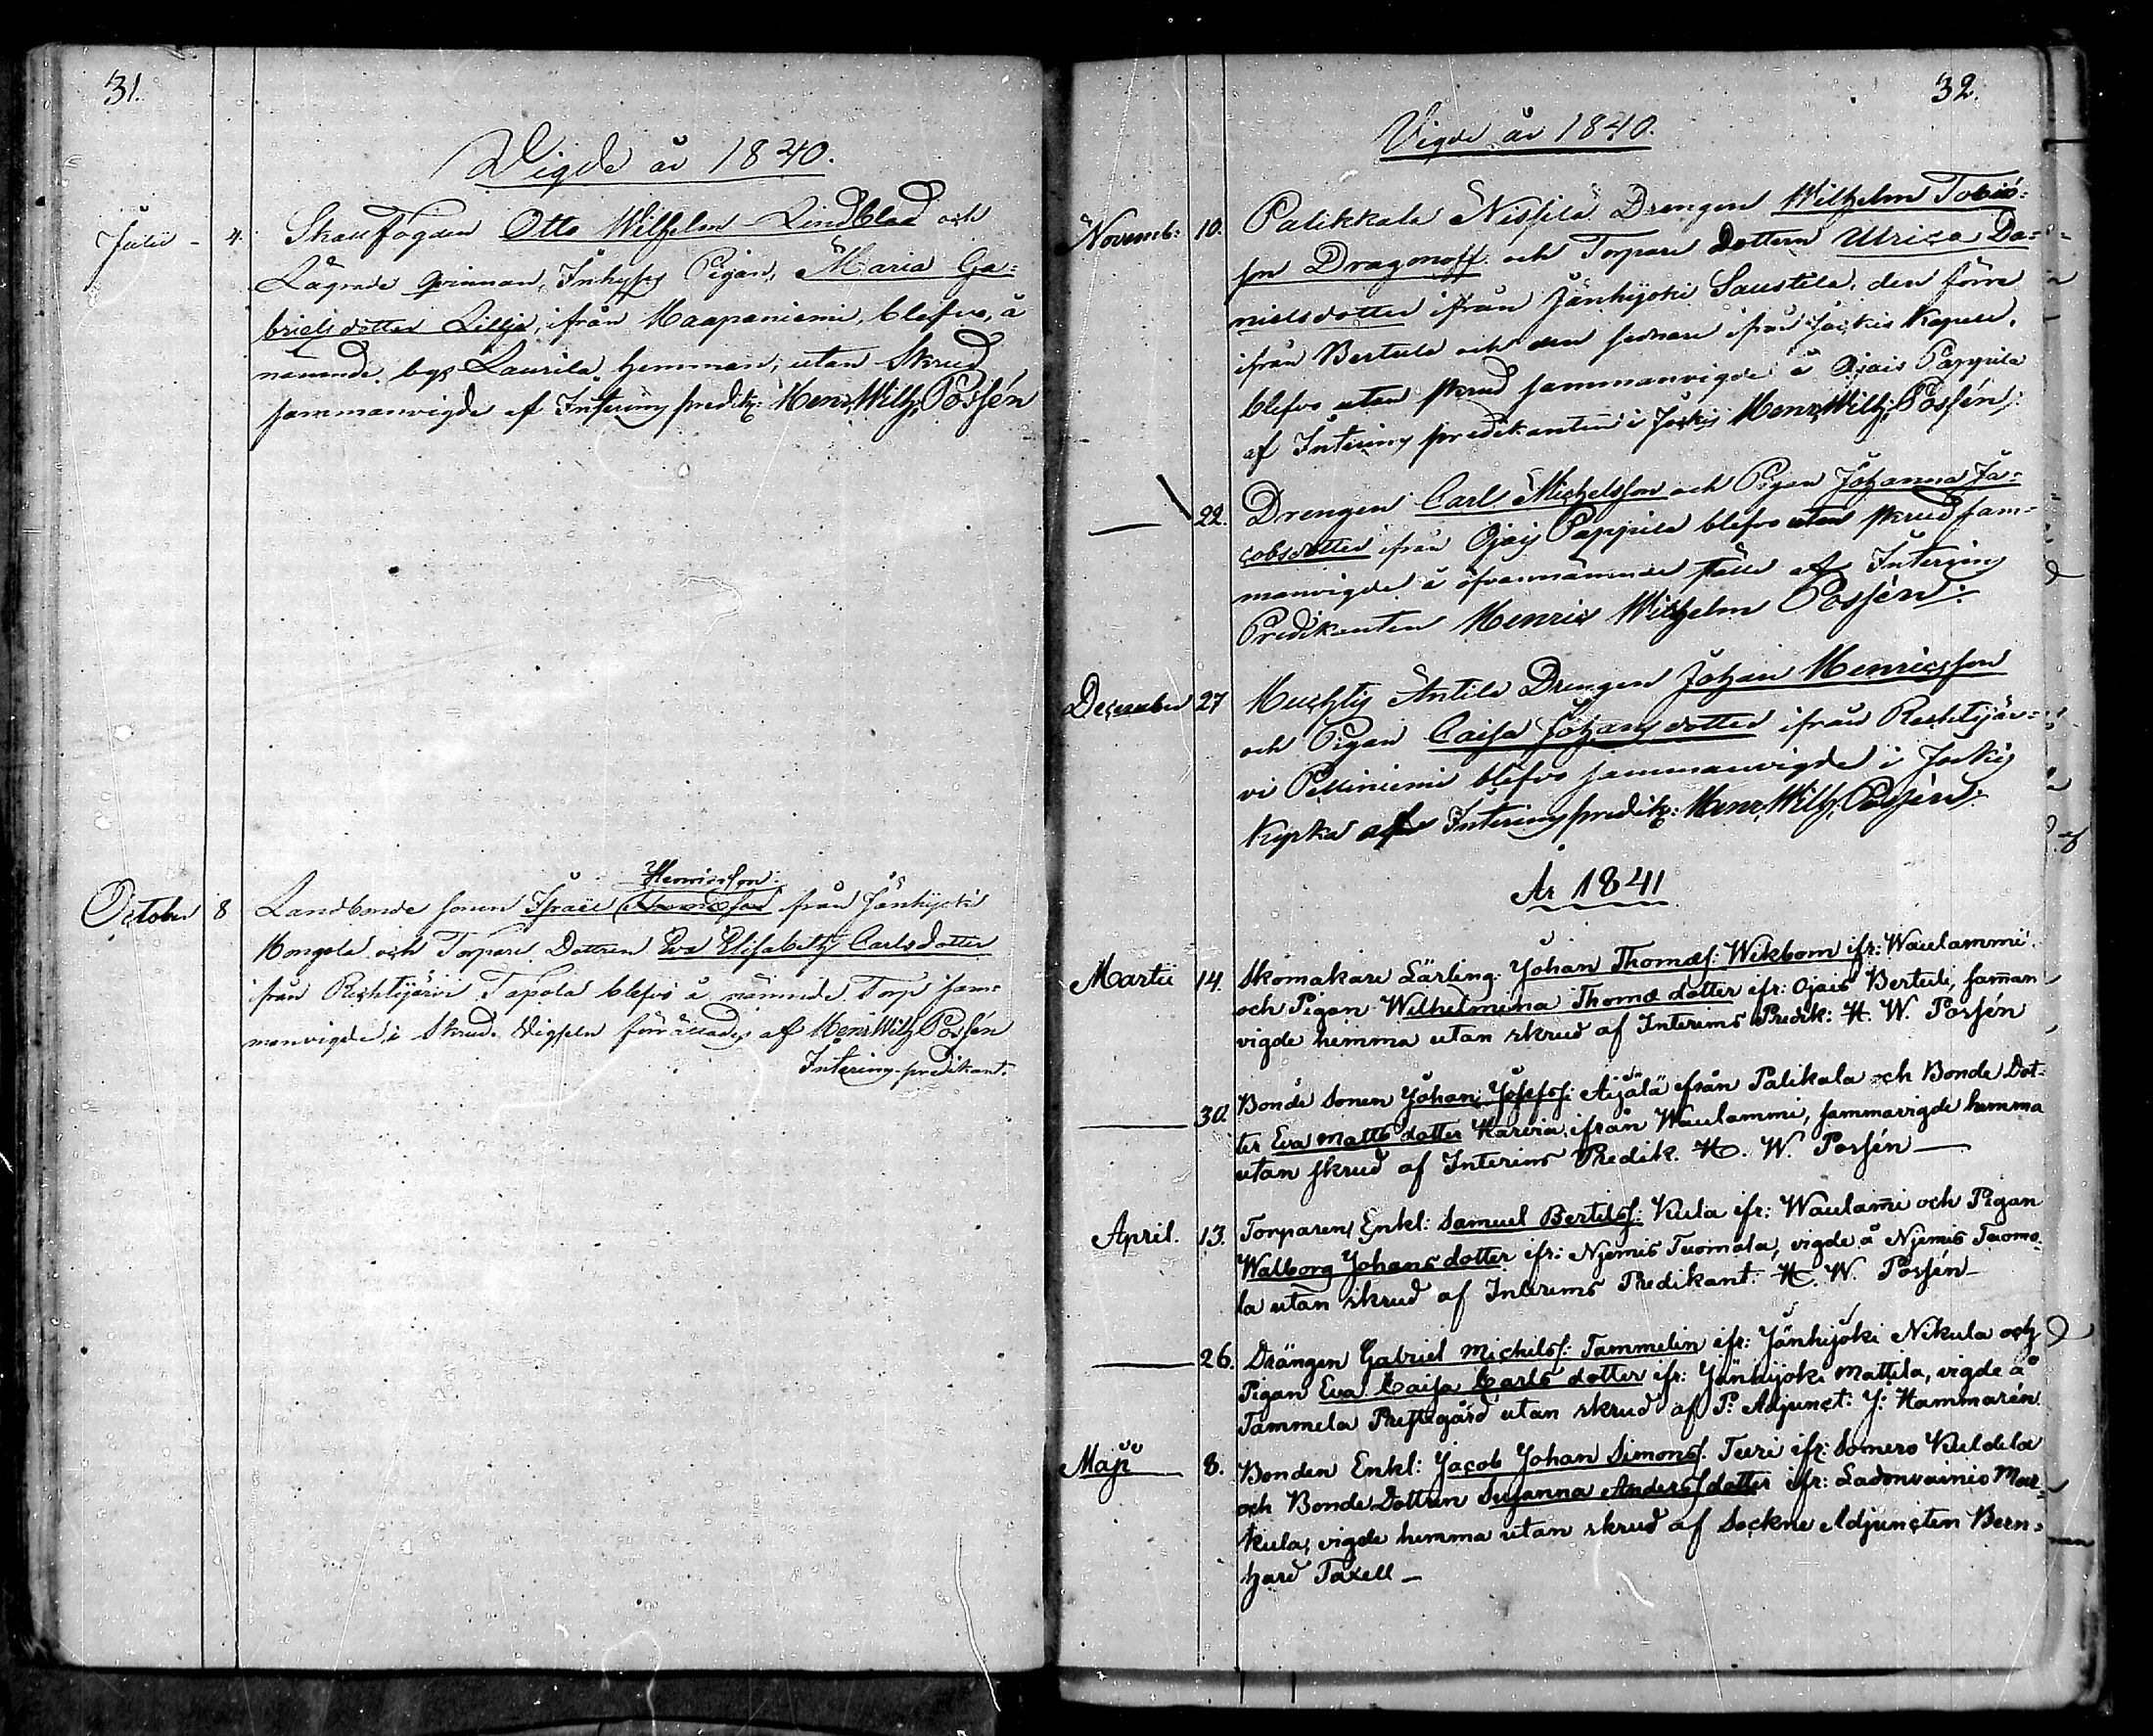 31.
Vigde år 1840.
Julii - 4. Skallfogden Otto Wilhelm Lindblad och
Lägrade qvinnan, Inhyses Pigan, Maria Ga=
brielsdotter Lillja, ifrån Haapaniemi, blefvo, å
nämnde bys Laurila hemman, utan Skrud
sammanvigde af Interims predik: Henr. Wilh. Possén
Henricsson.
October 8 Landbonde sonen Israel från Jänhijoki
Hongola och Torpare Dottren Eva Elisabeth Carlsdotter
ifrån Rehtijärvi Tapola blefvo å nämnde Torp sam=
manvigde i Skrud. Vigseln förrättades af Henr. Wilh. Possén
Interims-predikant.
32.
Vigde år 1840.
Novemb: 10. Palikkala Nissilä Drengen Wilhelm Tobias=
son Dragonoff och Torpare Dottern Ulrica Da=
nielsdotter ifrån Jänhijoki Saustila, den förre
ifrån Bertula och den sednare ifrån Jockis Kapell,
blefvo utan skrud sammanvigde å Ojais Pappila
af Interims predikanten i Jockis Henr. Wilh. Possén.
— 22. Drengen Carl Michelsson och Pigan Johanna Ja=
cobsdotter ifrån Ojais Pappila blefvo utan skrud sam=
manvigde å ofvannämnde ställe af Interims
Predikanten Henric Wilhelm Possén.
December 27 Huhtis Antila Drengen Johan Henricsson
och Pigan Caisa Johansdotter ifrån Rehtijär=
vi Pelliniemi blefvo sammanvigde i Jockis
Kyrka af Interims predik: Henr. Wilh. Possén.
År 1841
Martii 14. Skomakare Lärling: Johan Thomæs: Wikbom ifr: Waulammi
och Pigan Wilhelmina Thomæ dotter ifr: Ojais Bertula, samman
vigde hemma utan skrud af Interims Predik: H. W. Possén
— 30. Bonde Sonen Johan Josefs: Äijälä ifrån Palikala och Bonde Dot=
ter Eva Matts dotter Harvia ifrån Waulammi, sammavigde hemma
utan skrud af Interims Predik. H. W. Possén —
April. 13. Torparen Enkl: Samuel Bertils: Kula ifr: Waulam̄i och Pigan
Walborg Johans dotter ifr: Njemis Tuomala, vigde å Njemis Tuoma=
la utan skrud af Interims Predikant: H. W. Possén —
— 26. Drängen Gabriel Michels: Tammelin ifr: Jänhijoki Nikula och
Pigan Eva Caisa Carls dotter ifr: Jänhijoki Mattila, vigde å
Tammela Prestegård utan skrud af P: Adjunct: J: Hammarén
Maji 8. Bonden Enkl: Jacob Johan Simons. Teeri ifr: Somero Kuldela
och Bonde Dottren Susanna Anders dotter ifr: Ladonvainio Mar=
kula, vigde hemma utan skrud af Sockne Adjuncten Bern=
hard Taxell —